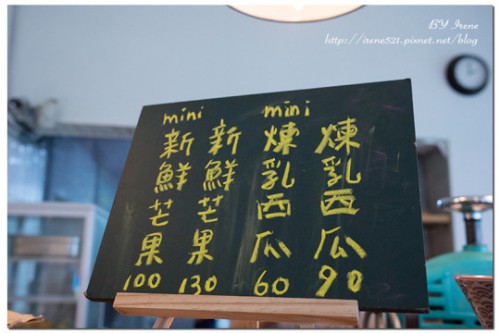 BY Irene
http://irene521.pixnet.net/blog
mini
新鮮芒果
100
新鮮芒果
130
mini
煉乳西瓜
60
煉乳西瓜
90